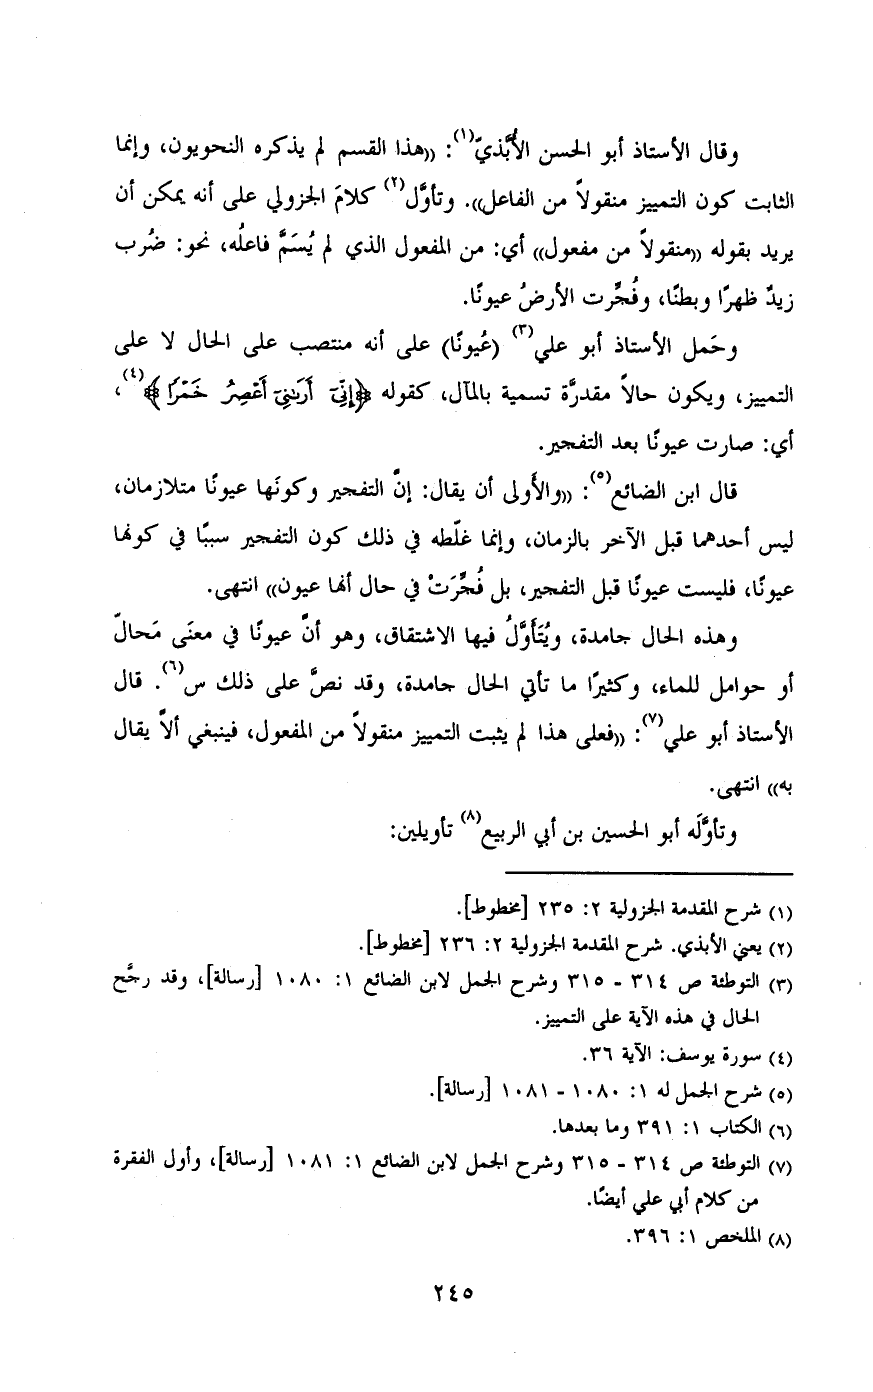 وقال الأستاذ أبو الحسن الأُبَّذيّ(١): ((هذا القسم لم يذكره النحويون، وإنما
الثابت كون التمييز منقولاً من الفاعل)). وتأوَّل(٢) كلامَ الجزولي على أنه يمكن أن
يريد بقوله ((منقولاً من مفعول)) أي: من المفعول الذي لم يُسَمَّ فاعلُه، نحو: ضُرب
زيدٌ ظهرًا وبطنًا، وفُجِّرت الأرضُ عيونًا.
وحَمل الأستاذ أبو علي(٣) (عُيونًا) على أنه منتصب على الحال لا على
التمييز، ويكون حالاً مقدرَّة تسمية بالمآل، كقوله ﴿إِنِّيٓ أَرَىٰنِيٓ أَعْصِرُ خَمْرًا﴾(٤)،
أي: صارت عيونًا بعد التفجير.
قال ابن الضائع(٥): ((والأَولى أن يقال: إنَّ التفجير وكونَها عيونًا متلازمان،
ليس أحدهما قبل الآخر بالزمان، وإنما غلّطه في ذلك كون التفجير سببًا في كونها
عيونًا، فليست عيونًا قبل التفجير، بل فُجِّرَتْ في حال أنها عيون)) انتهى.
وهذه الحال جامدة، ويُتَأَوَّلُ فيها الاشتقاق، وهو أنَّ عيونًا في معنَى مَحالّ
أو حوامل للماء، وكثيرًا ما تأتي الحال جامدة، وقد نصَّ على ذلك س(٦). قال
الأستاذ أبو علي(٧): ((فعلى هذا لم يثبت التمييز منقولاً من المفعول، فينبغي ألاَّ يقال
به)) انتهى.
وتأوَّلَه أبو الحسين بن أبي الربيع(٨) تأويلين:
(١) شرح المقدمة الجزولية ٢: ٢٣٥ [مخطوط].
(٢) يعني الأبذي. شرح المقدمة الجزولية ٢: ٢٣٦ [مخطوط].
(٣) التوطئة ص ٣١٤ - ٣١٥ وشرح الجمل لابن الضائع ١: ١٠٨٠ [رسالة]، وقد رجَّح
الحال في هذه الآية على التمييز.
(٤) سورة يوسف: الآية ٣٦.
(٥) شرح الجمل له ١: ١٠٨٠ - ١٠٨١ [رسالة].
(٦) الكتاب ١: ٣٩١ وما بعدها.
(٧) التوطئة ص ٣١٤ - ٣١٥ وشرح الجمل لابن الضائع ١: ١٠٨١ [رسالة]، وأول الفقرة
من كلام أبي علي أيضًا.
(٨) الملخص ١: ٣٩٦.
٢٤٥